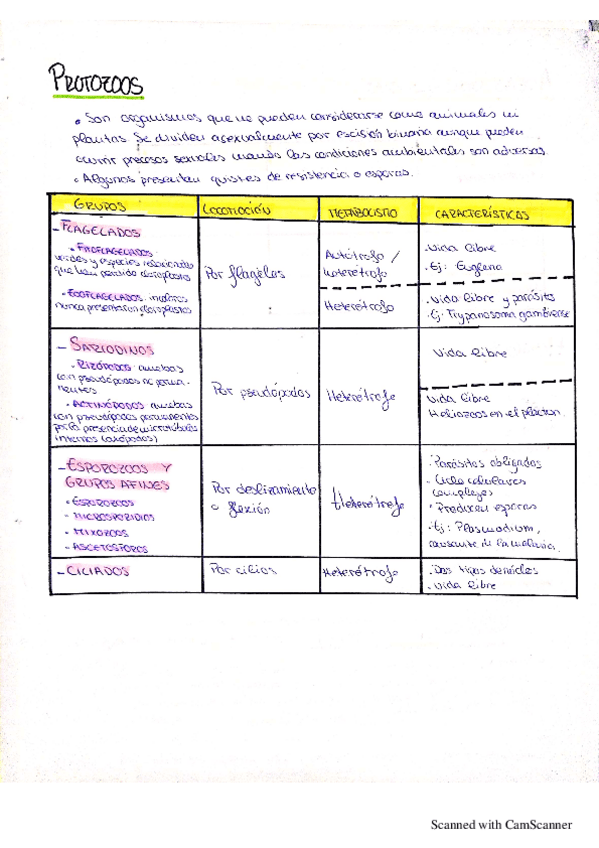 PROTOZOOS
• Son organismos que no pueden considerarse como animales ni
plantas. Se dividen asexualmente por escisión binaria aunque pueden
ocurrir procesos sexuales cuando las condiciones ambientales son adversas.
• Algunos presentan quistes de resistencia o esporas.
GRUPOS LOCOMOCIÓN METABOLISMO CARACTERÍSTICAS
- FLAGELADOS
• FITOFLAGELADOS:
verdes y especies relacionadas
que han perdido cloroplastos
• ZOOFLAGELADOS: incoloros
nunca presentaron cloroplastos
Por flagelos
Autótrofo /
heterótrofo
Heterótrofo
. Vida libre
. Ej: Euglena
. Vida libre y parásito
. Ej: Trypanosoma gambiense
- SARCODINOS
• RIZÓPODOS: amebas
con pseudópodos no perma-
nentes
• ACTINÓPODOS: amebas
con pseudópodos permanentes
por la presencia de microtúbulos
internos (axópodos)
Por pseudópodos
Heterótrofo
Vida libre
. Vida libre
Heliozoos en el placton.
- ESPOROZOOS Y
GRUPOS AFINES
• ESPOROZOOS
• MICROSPORIDIOS
• MIXOZOOS
• ASCETOSPOROS
Por deslizamiento
o flexión
Heterótrofo
. Parásitos obligados
. Ciclo celulares
complejos
• Producen esporas
. Ej: Plasmodium,
causante de la malaria.
- CILIADOS
Por cilios
Heterótrofo
. Dos tipos de núcleos
. Vida libre
Scanned with CamScanner